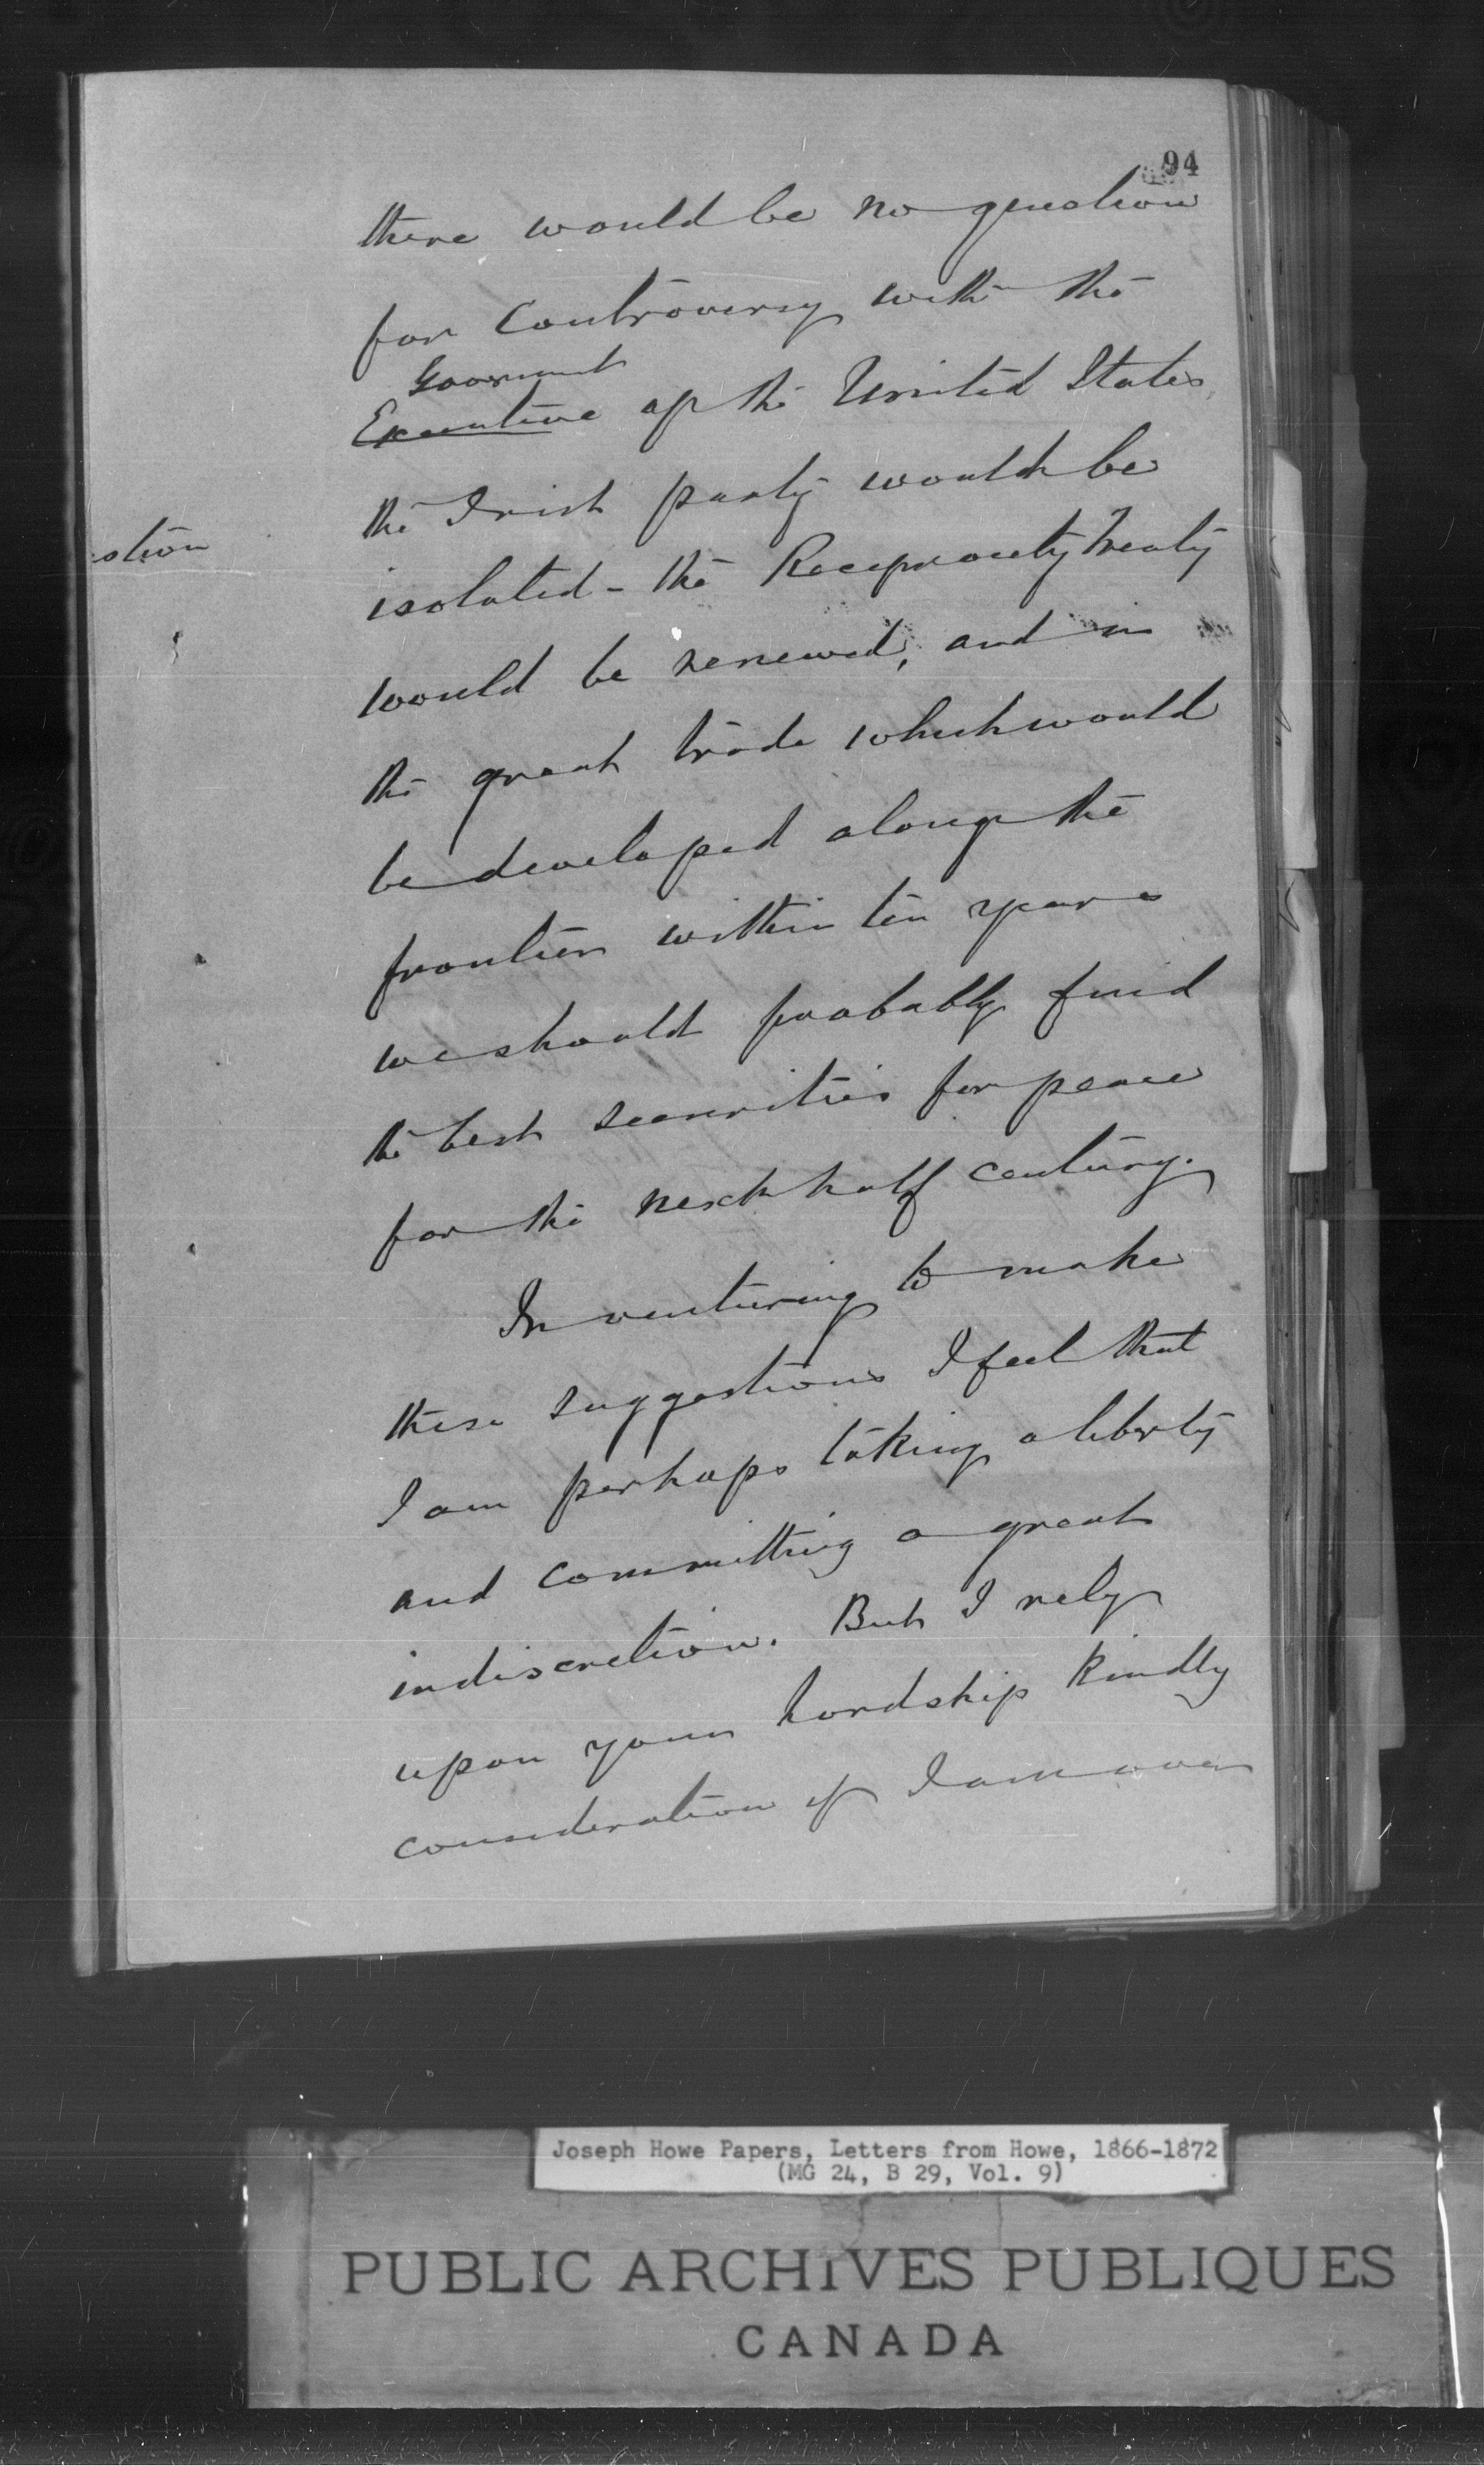 94
there would be no question
for Controversy with the
Government
Executive of the United States,
the Irish party would be
isolated - the Reciprocity Treaty
would be renewed, and in
the great trade which would
be developed along the
frontier within ten years
we should probably find
the best securities for peace
for the next half century.
In venturing to make
these suggestions I feel that
I am perhaps taking a liberty
and committing a great
indiscretion. But I rely
upon your Lordship kindly
consideration if I am over
estion
Joseph Howe Papers, Letters from Howe, 1866-1872
(MG 24, B 29, Vol. 9)
PUBLIC ARCHIVES PUBLIQUES
CANADA